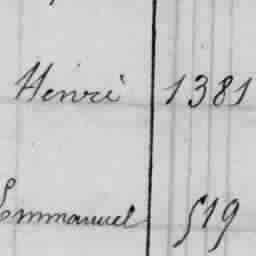 Henri 1381
Emmanuel 519